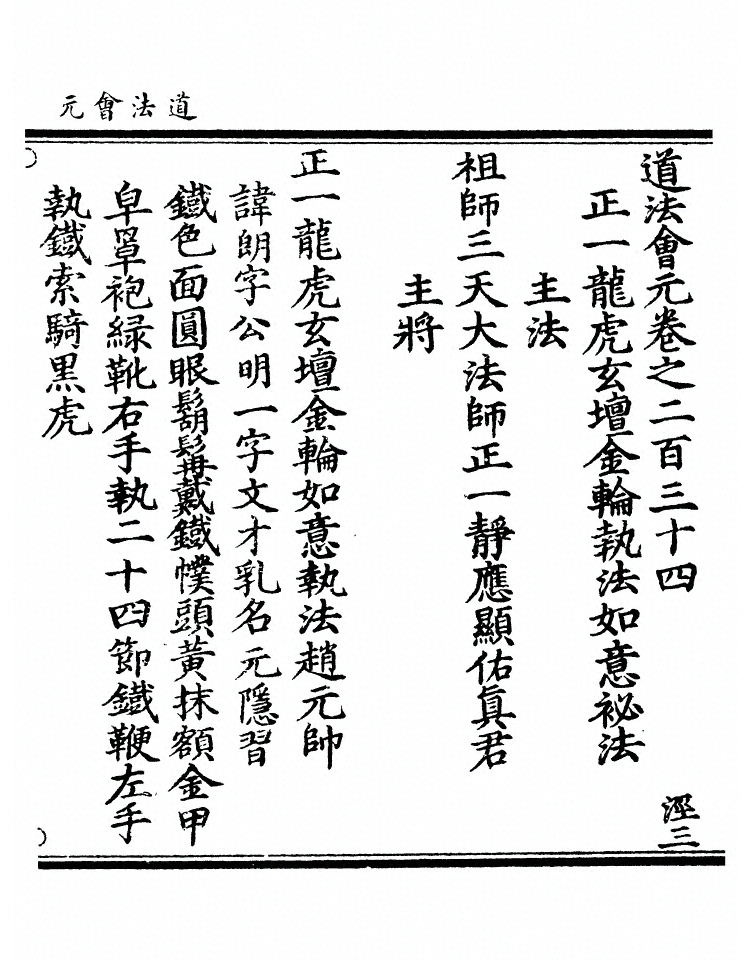 道法會元
道法會元卷之二百三十四
涇三
正一龍虎玄壇金輪執法如意祕法
主法
祖師三天大法師正一靜應顯佑真君
主將
正一龍虎玄壇金輪如意執法趙元帥
諱朗字公明一字文才乳名元隱習
鐵色面圓眼鬍髯戴鐵幞頭黃抹額金甲
皁罩袍綠靴右手執二十四節鐵鞭左手
執鐵索騎黑虎